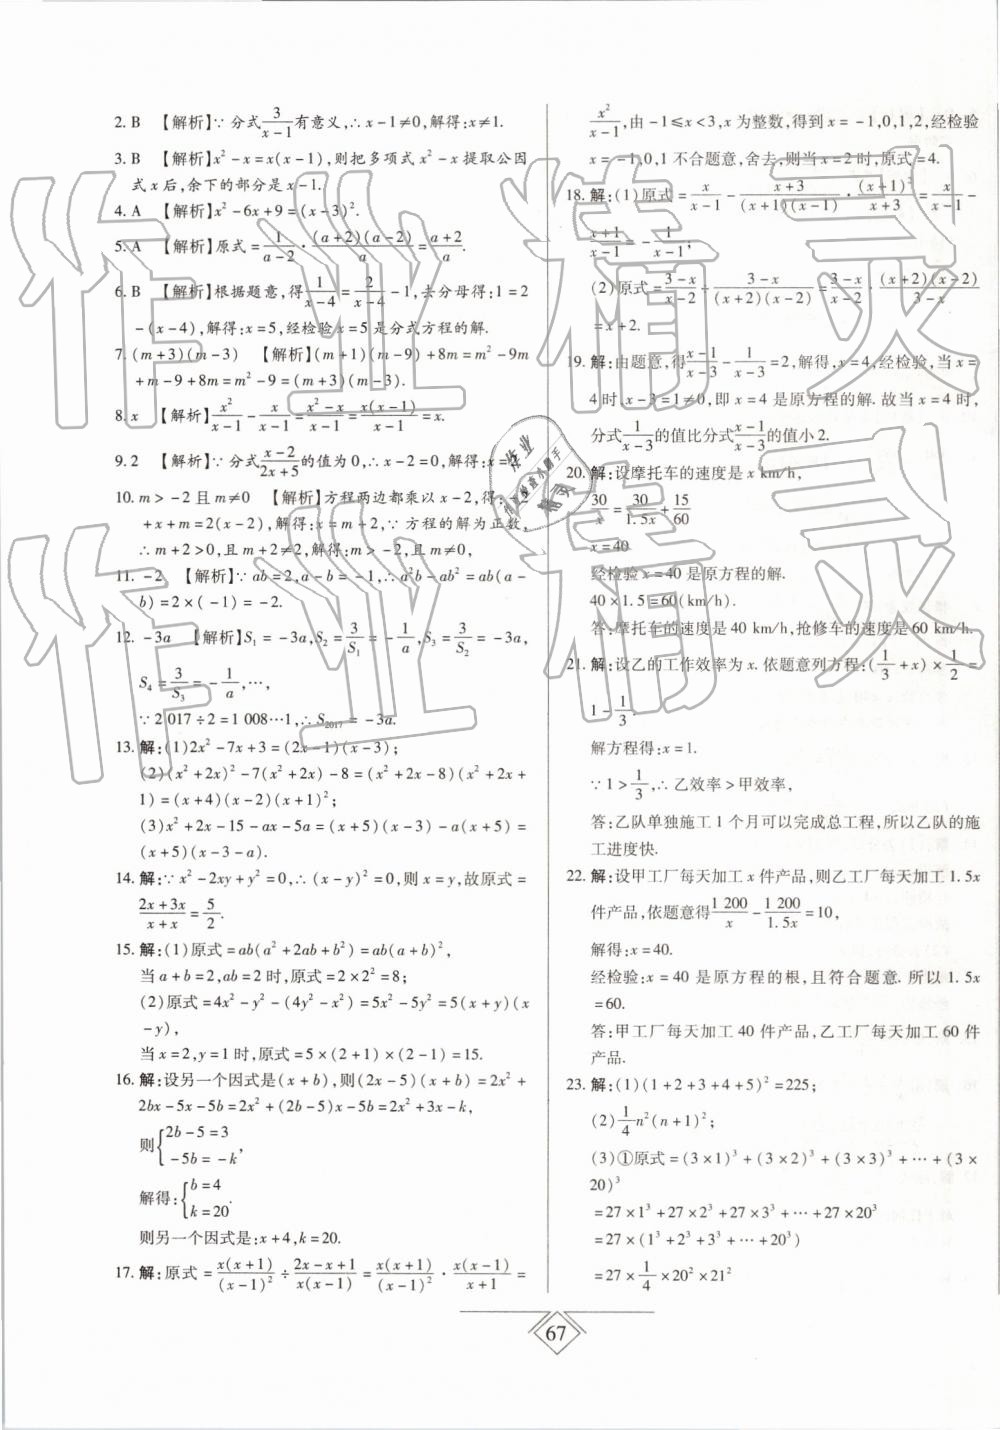 2. B 【解析】∵分式3/(x-1)有意义,∴x-1≠0,解得:x≠1.
3. B 【解析】x²-x=x(x-1),则把多项式x²-x提取公因
式x后,余下的部分是x-1.
4. A 【解析】x²-6x+9=(x-3)².
5. A 【解析】原式=1/(a-2)·(a+2)(a-2)/a=(a+2)/a.
6. B 【解析】根据题意,得1/(x-4)=2/(x-4)-1,去分母得:1=2
-(x-4),解得:x=5,经检验x=5是分式方程的解.
7. (m+3)(m-3) 【解析】(m+1)(m-9)+8m=m²-9m
+m-9+8m=m²-9=(m+3)(m-3).
8. x 【解析】x²/(x-1)-x/(x-1)=(x²-x)/(x-1)=x(x-1)/(x-1)=x.
9. 2 【解析】∵分式(x-2)/(2x+5)的值为0,∴x-2=0,解得:x=2.
10. m>-2且m≠0 【解析】方程两边都乘以x-2,得:2
+x+m=2(x-2),解得:x=m+2,∵方程的解为正数,
∴m+2>0,且m+2≠2,解得:m>-2,且m≠0,
11. -2 【解析】∵ab=2,a-b=-1,∴a²b-ab²=ab(a-
b)=2×(-1)=-2.
12. -3a 【解析】S₁=-3a,S₂=3/S₁=-1/a,S₃=3/S₂=-3a,
S₄=3/S₃=-1/a,…,
∵2 017÷2=1 008…1,∴S₂₀₁₇=-3a.
13. 解:(1)2x²-7x+3=(2x-1)(x-3);
(2)(x²+2x)²-7(x²+2x)-8=(x²+2x-8)(x²+2x+
1)=(x+4)(x-2)(x+1)²;
(3)x²+2x-15-ax-5a=(x+5)(x-3)-a(x+5)=
(x+5)(x-3-a).
14. 解:∵x²-2xy+y²=0,∴(x-y)²=0,则x=y,故原式=
(2x+3x)/(x+x)=5/2.
15. 解:(1)原式=ab(a²+2ab+b²)=ab(a+b)²,
当a+b=2,ab=2时,原式=2×2²=8;
(2)原式=4x²-y²-(4y²-x²)=5x²-5y²=5(x+y)(x
-y),
当x=2,y=1时,原式=5×(2+1)×(2-1)=15.
16. 解:设另一个因式是(x+b),则(2x-5)(x+b)=2x²+
2bx-5x-5b=2x²+(2b-5)x-5b=2x²+3x-k,
则{2b-5=3
-5b=-k,
解得:{b=4
k=20.
则另一个因式是:x+4,k=20.
17. 解:原式=x(x+1)/(x-1)²÷(2x-x+1)/x(x-1)=x(x+1)/(x-1)²·x(x-1)/(x+1)=
x²/(x-1),由-1≤x<3,x为整数,得到x=-1,0,1,2,经检验
x=-1,0,1不合题意,舍去,则当x=2时,原式=4.
18. 解:(1)原式=x/(x-1)-(x+3)/(x+1)(x-1)·(x+1)²/(x+3)=x/(x-1)-
(x+1)/(x-1)=-1/(x-1);
(2)原式=(3-x)/(x-2)÷(3-x)/(x+2)(x-2)=(3-x)/(x-2)·(x+2)(x-2)/(3-x)
=x+2.
19. 解:由题意,得(x-1)/(x-3)-1/(x-3)=2,解得,x=4,经检验,当x=
4时,x-3=1≠0,即x=4是原方程的解.故当x=4时,
分式1/(x-3)的值比分式(x-1)/(x-3)的值小2.
20. 解:设摩托车的速度是x km/h,
30/x=30/1.5x+15/60
x=40
经检验x=40是原方程的解.
40×1.5=60(km/h).
答:摩托车的速度是40 km/h,抢修车的速度是60 km/h.
21. 解:设乙的工作效率为x.依题意列方程:(1/3+x)×1/2=
1-1/3.
解方程得:x=1.
∵1>1/3,∴乙效率>甲效率,
答:乙队单独施工1个月可以完成总工程,所以乙队的施
工进度快.
22. 解:设甲工厂每天加工x件产品,则乙工厂每天加工1.5x
件产品,依题意得1 200/x-1 200/1.5x=10,
解得:x=40.
经检验:x=40是原方程的根,且符合题意.所以1.5x
=60.
答:甲工厂每天加工40件产品,乙工厂每天加工60件
产品.
23. 解:(1)(1+2+3+4+5)²=225;
(2)1/4n²(n+1)²;
(3)①原式=(3×1)³+(3×2)³+(3×3)³+…+(3×
20)³
=27×1³+27×2³+27×3³+…+27×20³
=27×(1³+2³+3³+…+20³)
=27×1/4×20²×21²
67
作业精灵
作业精灵